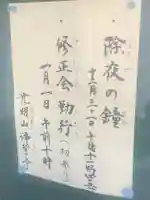 ・除夜の鐘
十二月三十一日午後十一時
・修正会勤行(初参り)
一月一日 午前十時
光明山